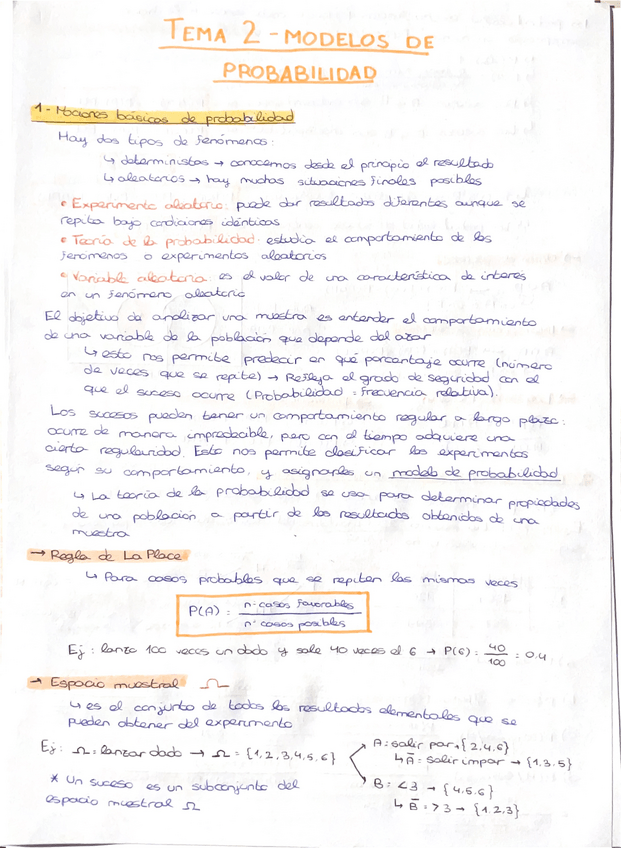 TEMA 2 - MODELOS DE
PROBABILIDAD
1- Nociones básicas de probabilidad
Hay dos tipos de fenómenos:
↳ deterministas → conocemos desde el principio el resultado
↳ aleatorios → hay muchas situaciones finales posibles
• Experimento aleatorio: puede dar resultados diferentes aunque se
repita bajo condiciones idénticas
• Teoría de la probabilidad: estudia el comportamiento de los
fenómenos o experimentos aleatorios
• Variable aleatoria: es el valor de una característica de interés
en un fenómeno aleatorio
El objetivo de analizar una muestra es entender el comportamiento
de una variable de la población que depende del azar
↳ esto nos permite predecir en qué porcentaje ocurre (número
de veces que se repite) → Refleja el grado de seguridad con el
que el suceso ocurre (Probabilidad = frecuencia relativa).
Los sucesos pueden tener un comportamiento regular a largo plazo:
ocurre de manera impredecible, pero con el tiempo adquiere una
cierta regularidad. Esto nos permite clasificar los experimentos
según su comportamiento, y asignarles un modelo de probabilidad
↳ La teoría de la probabilidad se usa para determinar propiedades
de una población a partir de los resultados obtenidos de una
muestra
→ Regla de La Place
↳ Para casos probables que se repiten las mismas veces
P(A) = nº casos favorables / nº casos posibles
Ej: lanzo 100 veces un dado y sale 40 veces el 6 → P(6) = 40/100 = 0.4
→ Espacio muestral Ω
↳ es el conjunto de todos los resultados elementales que se
pueden obtener del experimento
Ej: Ω = lanzar dado → Ω = {1,2,3,4,5,6}
A = salir par → {2,4,6}
↳ Ā = salir impar → {1,3,5}
B = <3 → {4,5,6}
↳ B̄ = >3 → {1,2,3}
* Un suceso es un subconjunto del
espacio muestral Ω